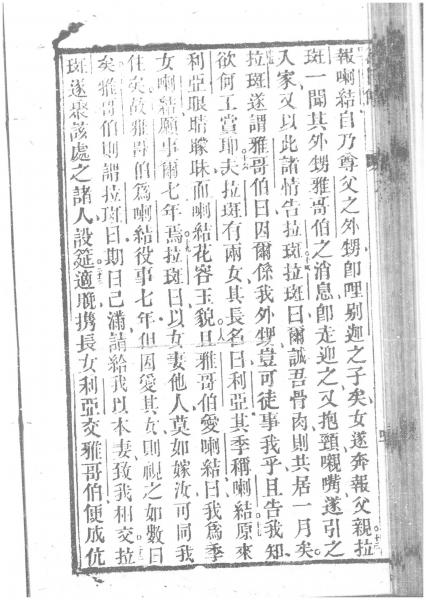 報喇結自乃尊父之外甥卽哩別迦之子矣女遂奔報父親拉
班一聞其外甥雅哥伯之消息卽走迎之又抱頸嚫嘴遂引之
入家又以此諸情告拉班拉班曰爾誠吾骨肉則共居一月矣
拉班遂謂雅哥伯曰因爾係我外甥豈可徒事我乎且告我知
欲何工賞耶夫拉班有兩女其長名曰利亞其季稱喇結原來
利亞眼睛矇昧而喇結花容玉貌且雅哥伯愛喇結曰我爲季
女喇結願事爾七年焉拉班曰以女妻他人莫如嫁汝可同我
住矣故雅哥伯爲喇結役事七年但因愛其女則視之如數日
矣雅哥伯則謂拉班曰期日已滿請給我以本妻致我相交拉
班遂聚該處之諸人設筵適晚携長女利亞交雅哥伯便成伉